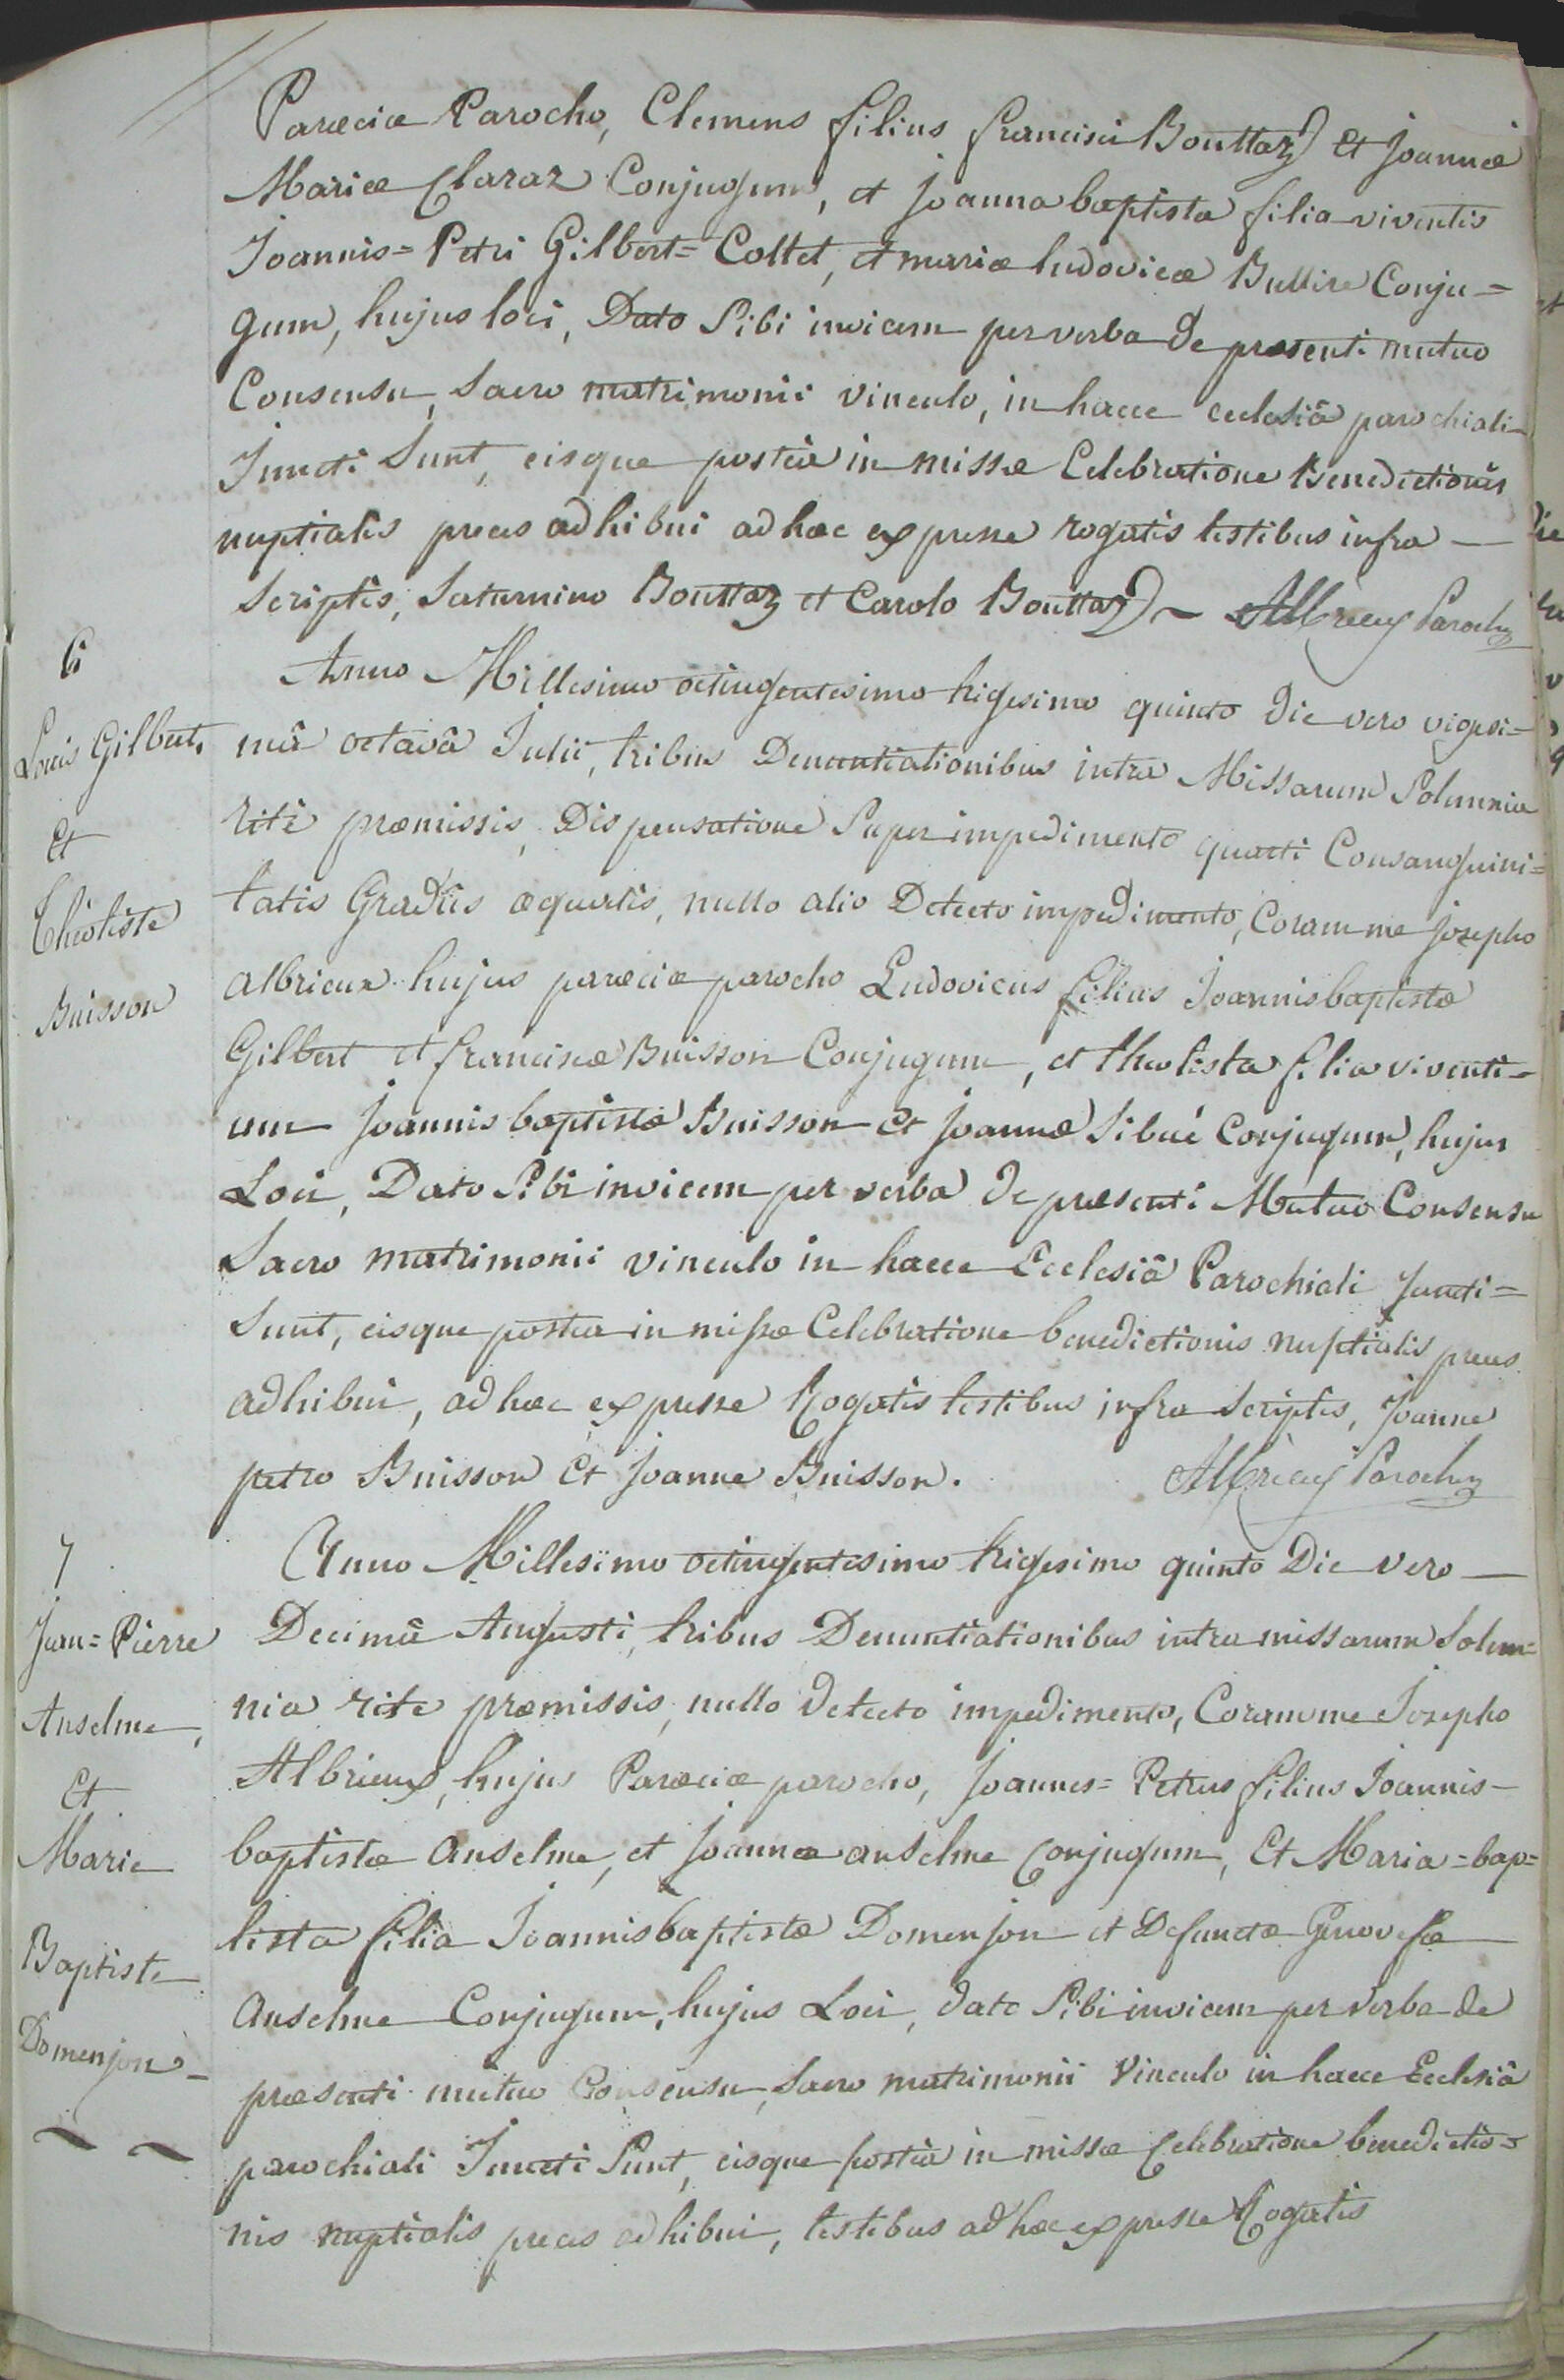 Paroeciæ Parocho, Clemens filius francisci Bouttaz et Joannæ
Mariæ Claraz Conjugum, et Joanna baptista filia viventis
Joannis= Petri Gilbert= Collet, et mariæ ludovicæ Conju=
gum, hujus loci, Dato Sibi invicem per verba de præsenti mutuo
Consensu, Sacro matrimonii vinculo, in hacce ecclesiâ parochiali
Juncti Sunt, eisque posteà in missæ Celebratione Benedictionis
nuptialis preces adhibui ad hæc expresse rogatis testibus infra —
Scriptis, Saturnino Bouttaz et Carolo Bouttaz ~ Albrieux Parochus
6
Louis Gilbert
Et
Théotiste
Buisson
Anno Millesimo octingentesimo trigesimo quinto die vero vigesi=
mâ octavâ Julii, tribus Denuntiationibus intra Missarum Solemnia
ritè præmissis, Dispensatione Super impedimento quarti Consanguini=
tatis Gradûs æqualis, nullo alio Detecto impedimento, Coram me Josepho
albrieux hujus parœciæ parocho Ludovicus filius Joannis baptistæ
Gilbert et franciscæ Buisson Conjugum, et theotista filia viventi=
um Joannis baptistæ Buisson et Joannæ Sibué Conjugum, hujus
Loci, Dato Sibi invicem per verba de præsenti Mutuo Consensu
Sacro matrimonii vinculo in hacce Ecclesiâ Parochiali Juncti=
Sunt, eisque postea in missæ Celebratione benedictionis nuptialis preces
adhibui, ad hæc expresse Rogatis testibus infra scriptis, Joanne
petro Buisson et Joanne Buisson. Albrieux Parochus
7
Jean= Pierre
Anselme,
Et
Marie
Baptiste
Domenjon =
~ ~
Anno Millesimo octingentesimo trigesimo quinto Die vero —
Decimâ Augusti, tribus Denuntiationibus intra missarum Solem=
nia rite præmissis, nullo detecto impedimento, Coram me Josepho
Albrieux, hujus Parœciæ parocho, Joannes= Petrus filius Joannis —
baptistæ Anselme, et Joannæ anselme Conjugum, Et Maria= bap=
tista filia Joannis baptistæ Domenjon et Defunctæ Genovefæ
Anselme Conjugum, hujus Loci, dato Sibi invicem per verba de
præsenti mutuo Consensu, Sacro matrimonii Vinculo in hacce Ecclesiâ
parochiali Juncti Sunt, eisque posteà in missæ Celebratione benedictio=
nis nuptialis preces adhibui, testibus ad hæc expresse Rogatis